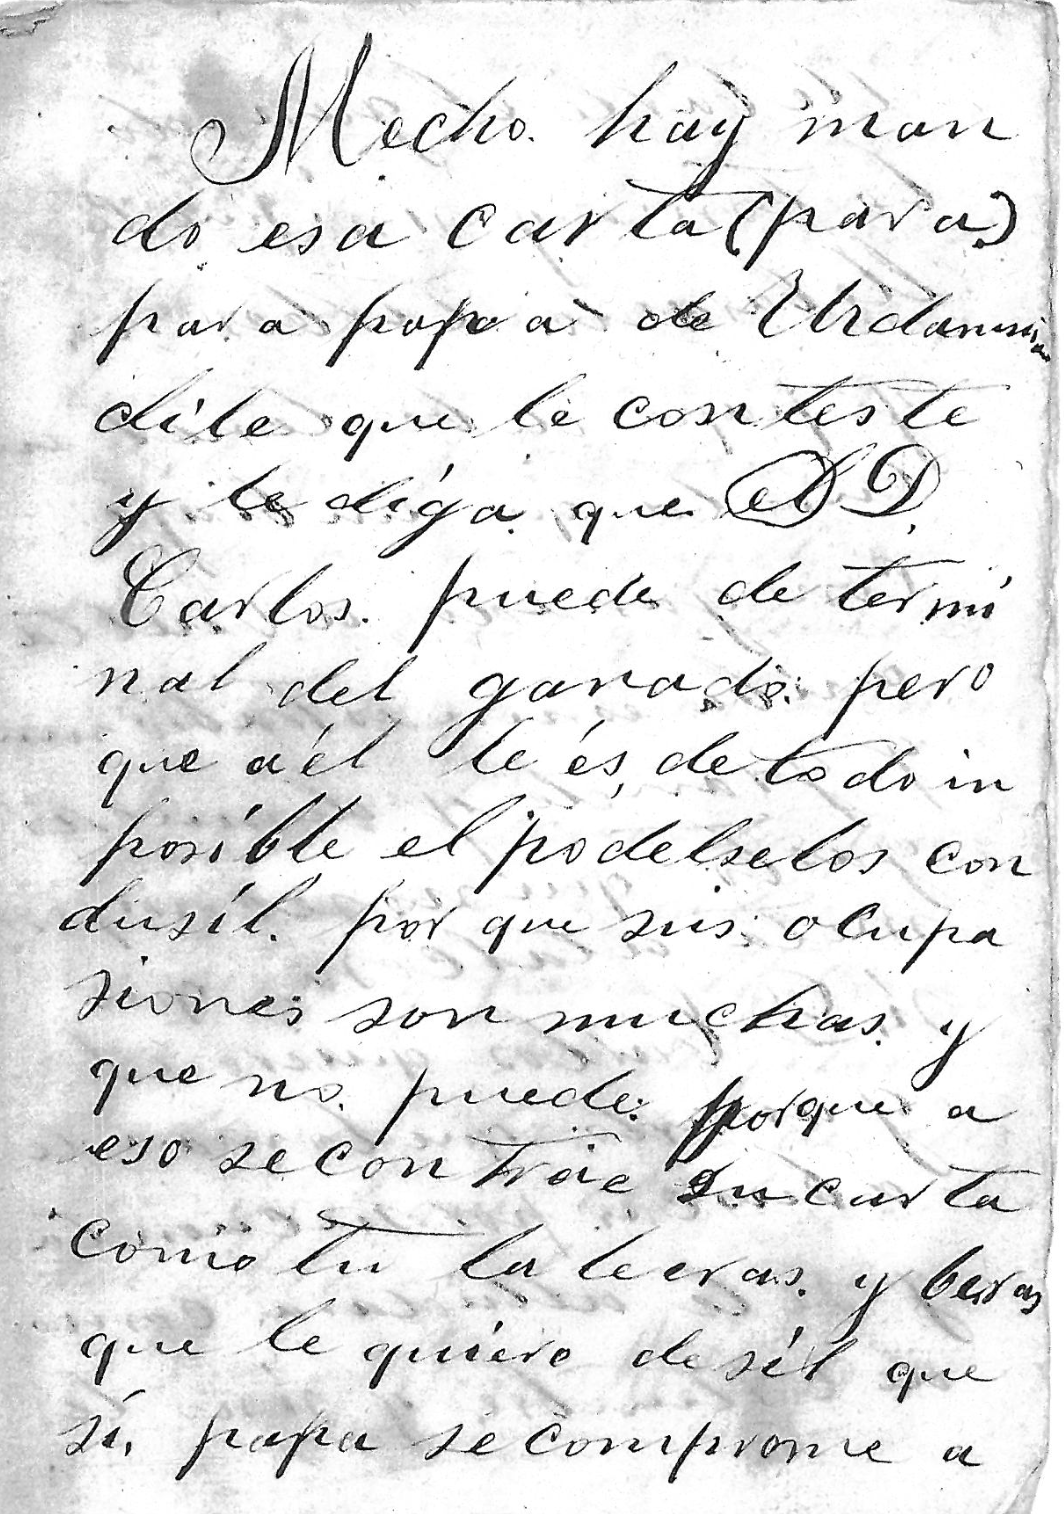 Mecho. hay man
do esa carta (para)
para papa a de Urdaneta
dile que le conteste
y le diga que el D.
Carlos. puede determi
nal del ganado. pero
que a él le és, de todo in
posible el podelselos con
dusil. por que sus ocupa
siones son muchas. y
que no. puede. porque a
eso se contrae su carta
como tu la leeras. y beras
que le quiere desil que
si, papa se comprome a